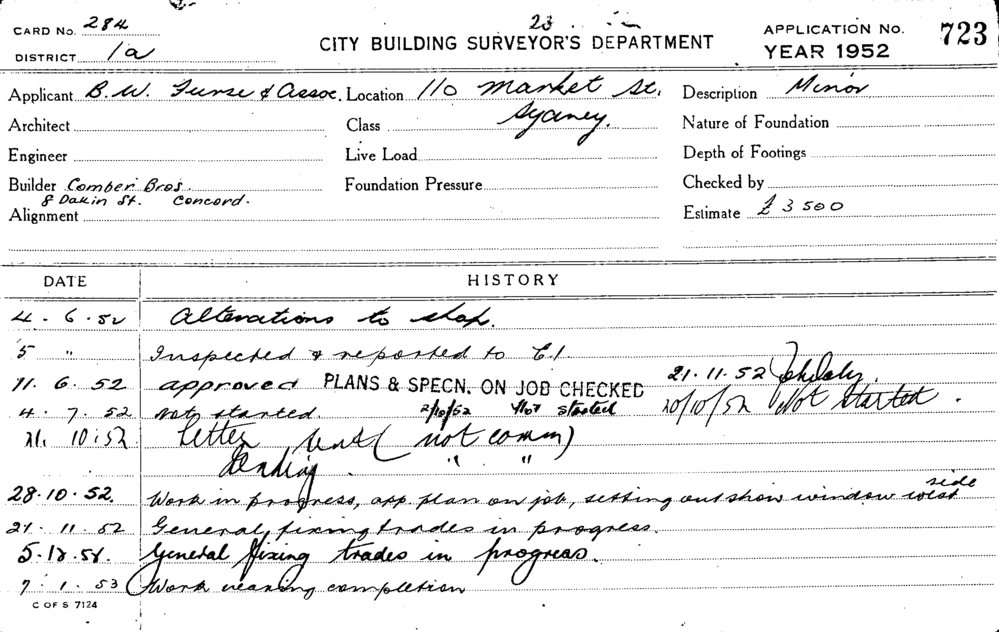 23
CARD No. 284 CITY BUILDING SURVEYOR'S DEPARTMENT APPLICATION No. 723
DISTRICT 1a YEAR 1952
Applicant B. W. Furse & Assoc. Location 110 Market St. Description Minor
Sydney.
Architect Class Nature of Foundation
Engineer Live Load Depth of Footings
Builder Comber Bros. Foundation Pressure Checked by
8 Dakin St. Concord.
Alignment Estimate £3500
DATE HISTORY
4.6.52 Alterations to shop.
5 " Inspected & reported to C.I.
11.6.52 approved PLANS & SPECN. ON JOB CHECKED 21.11.52
4.7.52 Not started 2/10/52 Not started 20/10/52 Not started.
21.10.52 Letter sent (not comm)
Pending. " "
28.10.52. Work in progress, app. plan on job, setting out show window west side
21.11.52 General fixing trades in progress.
5.12.52. General fixing trades in progress.
7.1.53 Work nearing completion
C OF S 7124